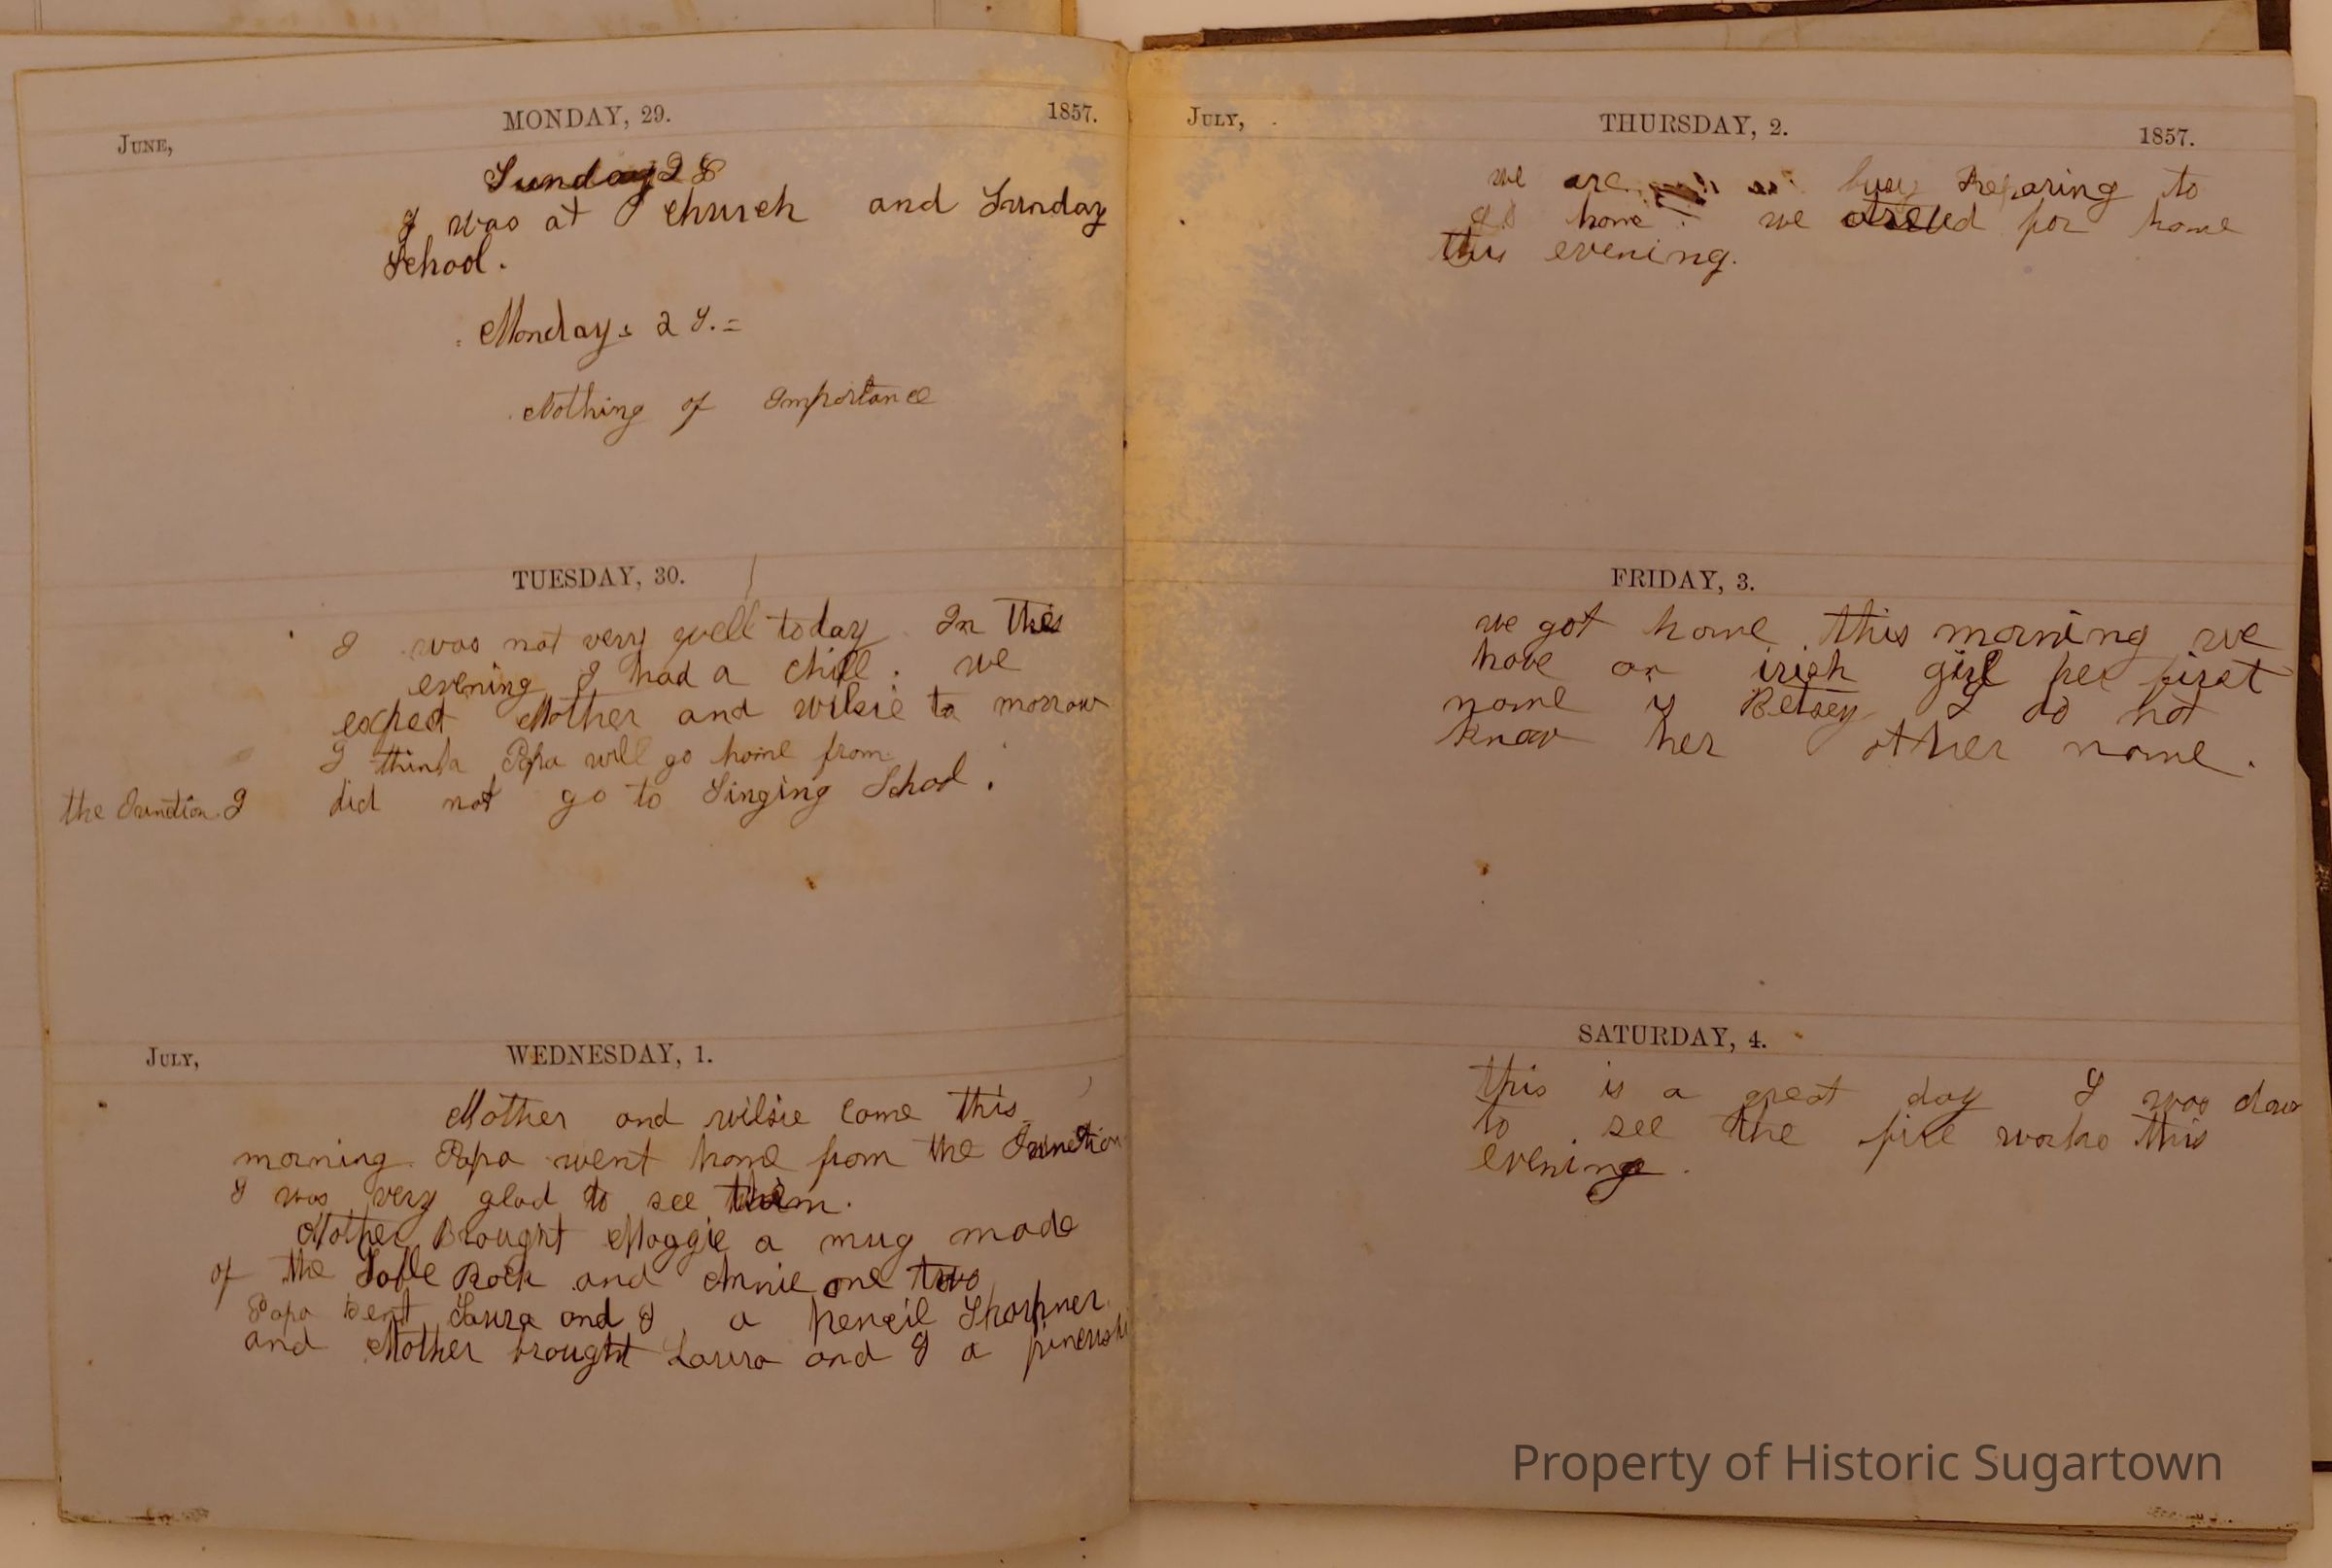 June,
MONDAY, 29.
1857.
Sunday 28
I was at church and Sunday
School.
Monday 29.=
Nothing of Importance
TUESDAY, 30.
I was not very well today. In this
evening I had a chill. we
expect Mother and wilsie to morrow
I think Papa will go home from
the Junction. I did not go to Singing School.
July,
WEDNESDAY, 1.
Mother and wilsie came this
morning. Papa went home from the Junction
I was very glad to see them.
Mother Brought Maggie a mug made
of the Table Rock and Annie one two
Papa sent Laura and I a pencil Sharpner
and Mother brought Laura and I a
July,
THURSDAY, 2.
1857.
we are busy Preparing to
home we for home
this evening.
FRIDAY, 3.
we got home this morning we
have an irish girl her first
name is Betsey I do not
know her other name.
SATURDAY, 4.
this is a great day I was down
to see the fire works this
evening.
Property of Historic Sugartown